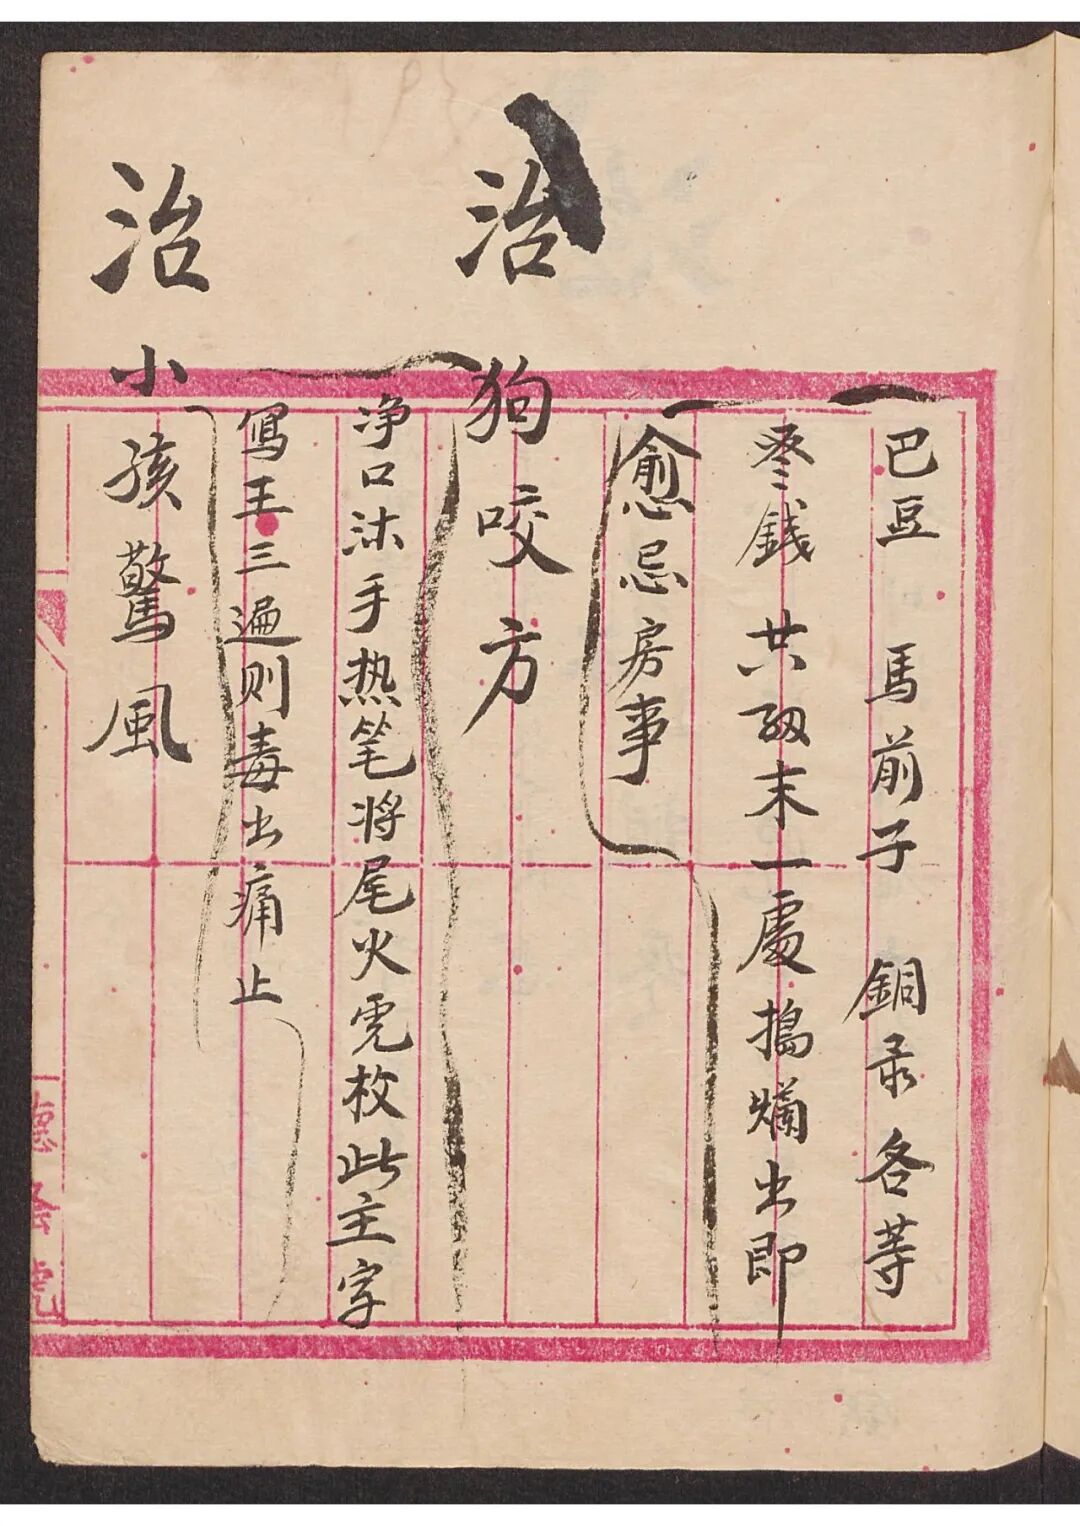 巴豆 馬前子 銅录各等
錢 共 末一處搗爛出即
愈忌房事
治狗咬方
净口沐手热笔将尾火 枚此主字
寫王三遍则毒出痛止
治小孩驚風
德 號